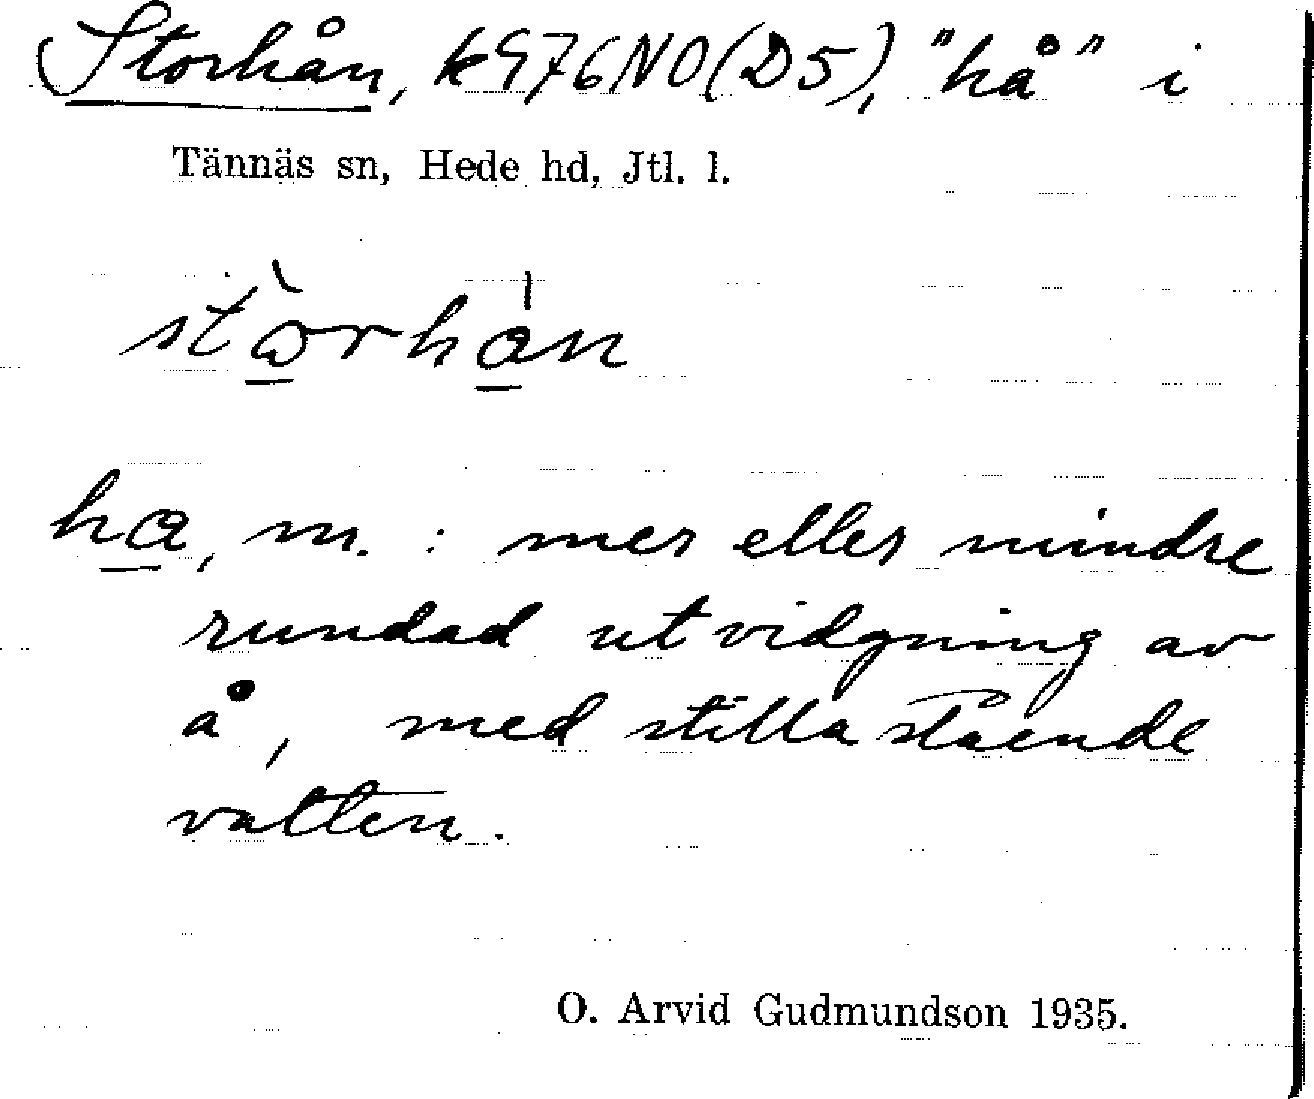 Storhån, k976NO(D5), "hå" i
Tännäs sn, Hede hd, Jtl. l.
ha, m. : mer eller mindre
rundad utvidgning av
å, med stillastående
vatten.
O. Arvid Gudmundson 1935.